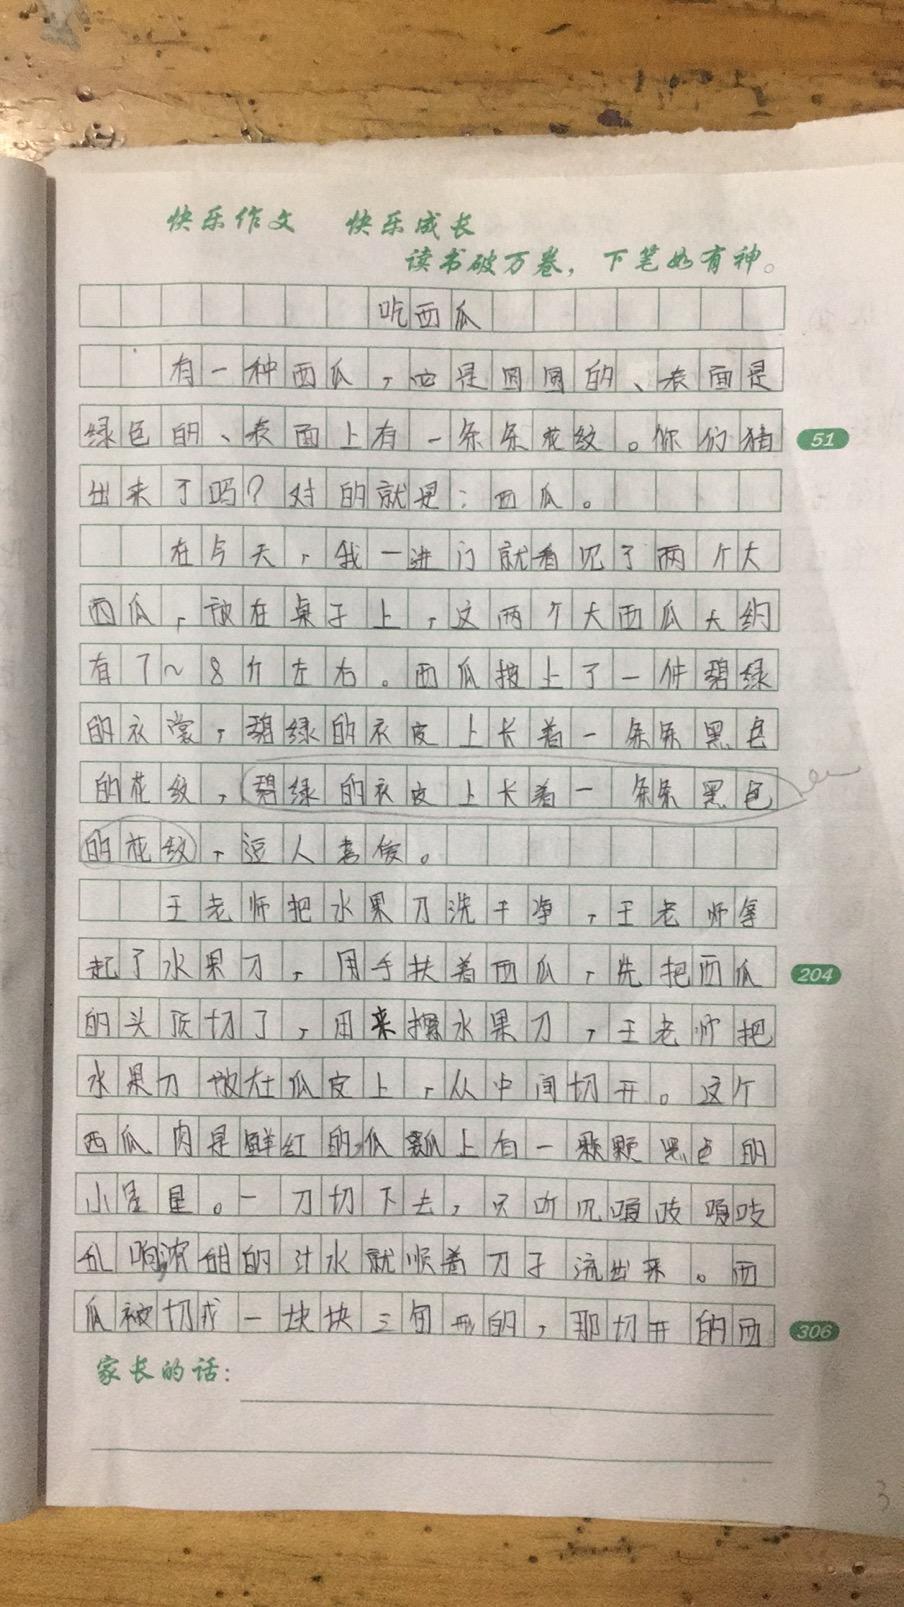 快乐作文 快乐成长
读书破万卷，下笔如有神。
吃西瓜
有一种西瓜，它是圆圆的、表面是
绿色的、表面上有一条条花纹。你们猜 51
出来了吗？对的就是：西瓜。
在今天，我一进门就看见了两个大
西瓜，放在桌子上，这两个大西瓜大约
有7～8斤左右。西瓜披上了一件碧绿
的衣裳，碧绿的衣皮上长着一条条黑色
的花纹，碧绿的衣皮上长着一条条黑色
的花纹，逗人喜爱。
王老师把水果刀洗干净，王老师拿
起了水果刀，用手扶着西瓜，先把西瓜 204
的头顶切了，用来擦水果刀，王老师把
水果刀放在瓜皮上，从中间切开。这个
西瓜肉是鲜红的瓜瓤上有一颗颗黑色的
小星星。一刀切下去，只听见嘎吱嘎吱
乱响浓甜的汁水就顺着刀子流出来。西
瓜被切成一块块三角形的，那切开的西 306
家长的话：
3